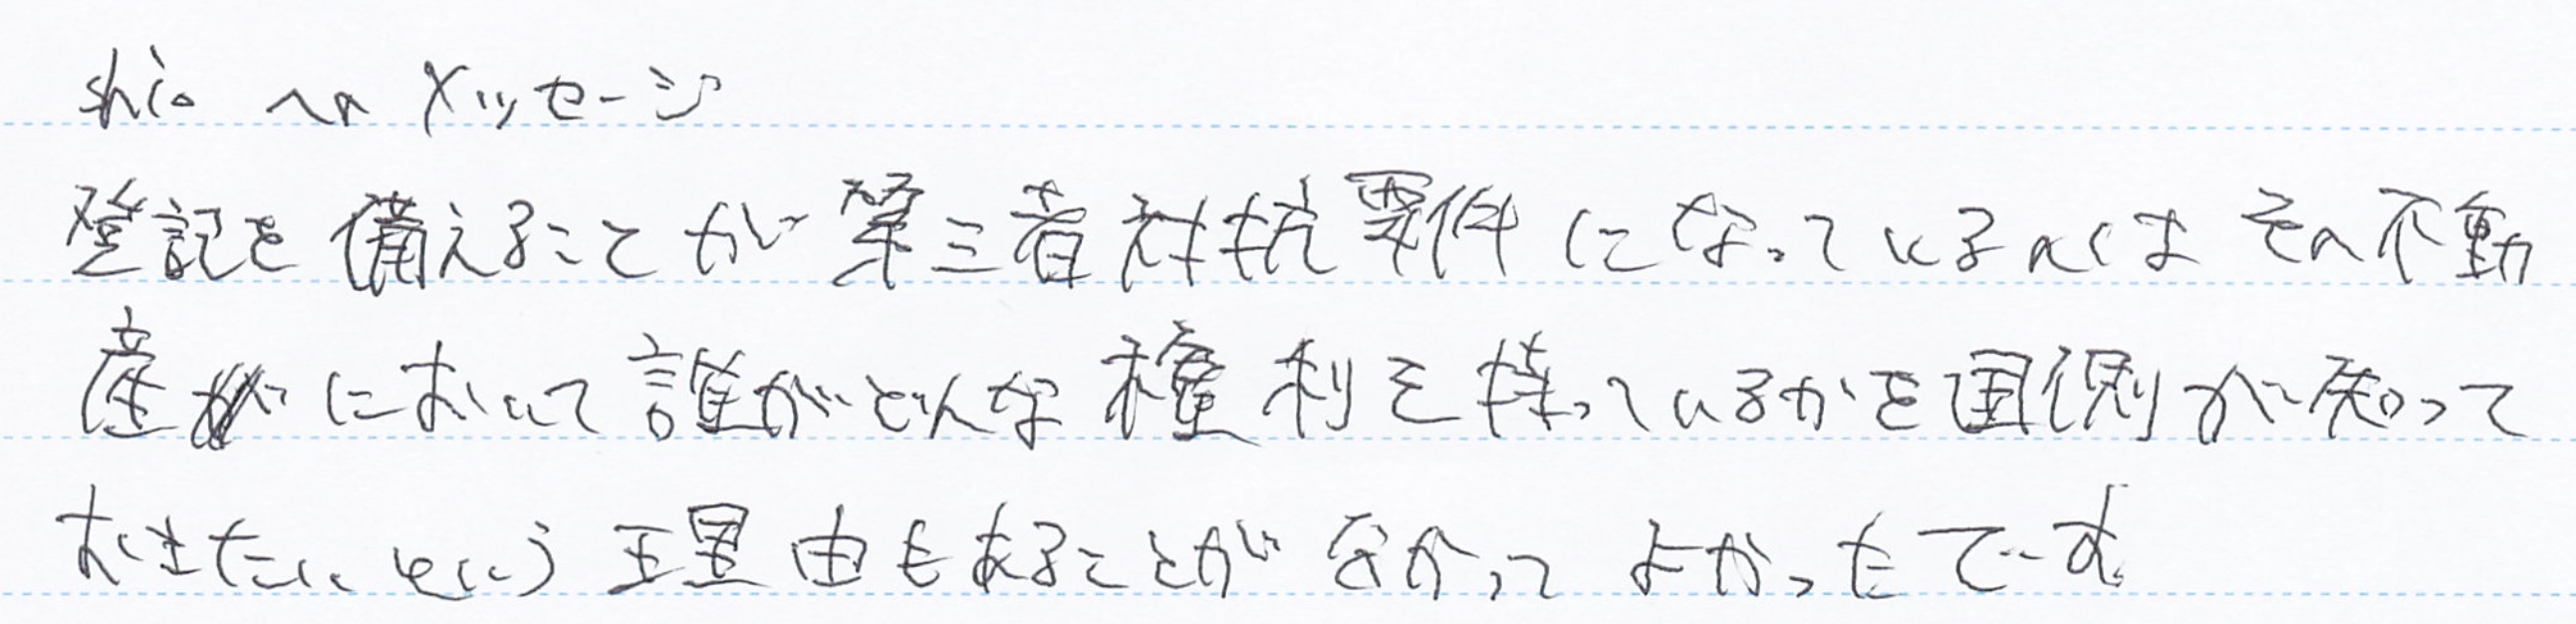 shioへのメッセージ
登記を備えることが第三者対抗要件になっているのはその不動
産において誰がどんな権利を持っているかを国側が知って
おきたいという理由もあることが分かってよかったです